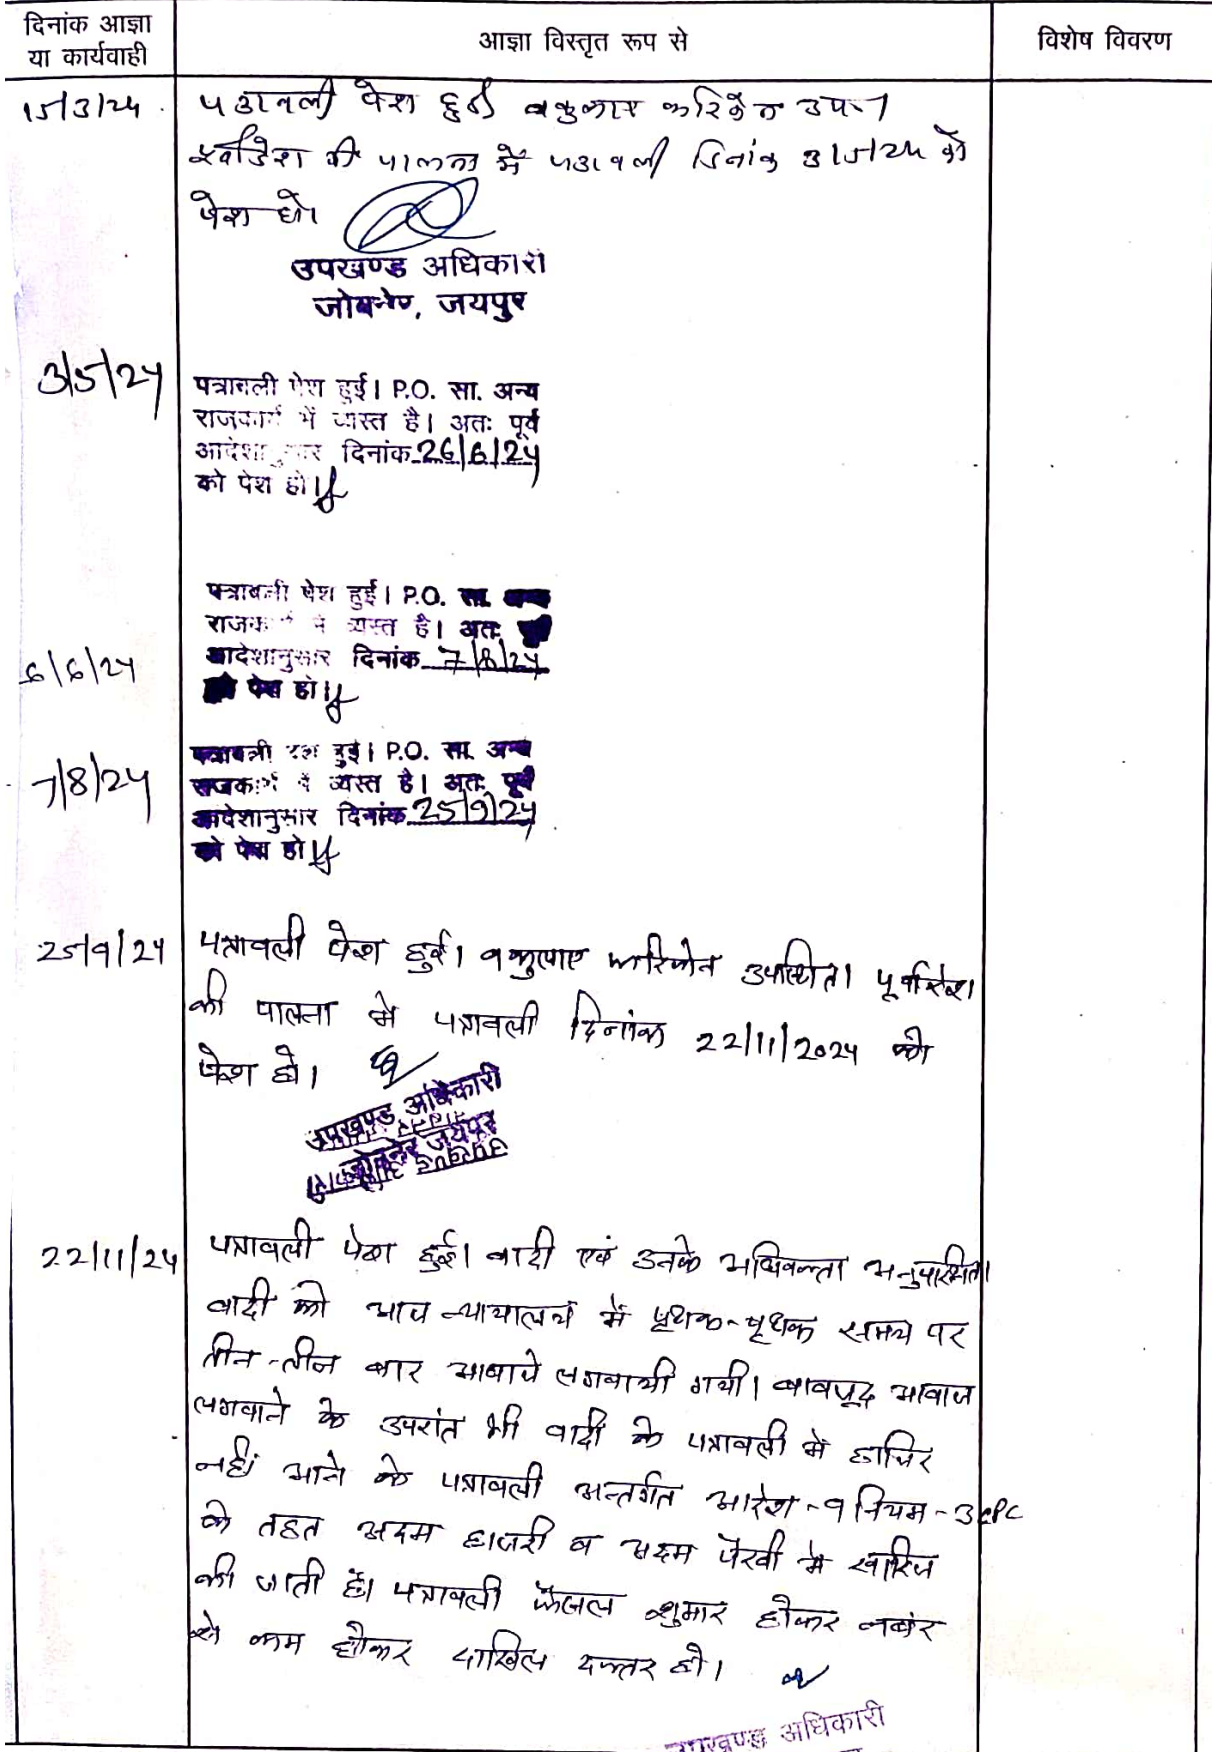 दिनांक आज्ञा
या कार्यवाही
आज्ञा विस्तृत रूप से
विशेष विवरण
15/3/24
पत्रावली पेश हुई वकुलाए फरिकेन उप.।
पूर्वादेश की पालना में पत्रावली दिनांक 3/5/24 को
पेश हो।
उपखण्ड अधिकारी
जोबनेर, जयपुर
3/5/24
पत्रावली पेश हुई। P.O. सा. अन्य
राजकार्य में व्यस्त है। अतः पूर्व
आदेशानुसार दिनांक 26/6/24
को पेश हो।
6/6/24
पत्रावली पेश हुई। P.O. सा. अन्य
राजकार्य में व्यस्त है। अतः पूर्व
आदेशानुसार दिनांक 7/8/24
को पेश हो।
7/8/24
पत्रावली पेश हुई। P.O. सा. अन्य
राजकार्य में व्यस्त है। अतः पूर्व
आदेशानुसार दिनांक 25/9/24
को पेश हो।
25/9/24
पत्रावली पेश हुई। वकुलाए फरिकेन उपस्थित। पूर्वादेश
की पालना में पत्रावली दिनांक 22/11/2024 को
पेश हो।
उपखण्ड अधिकारी
जोबनेर जयपुर
22/11/24
पत्रावली पेश हुई। वादी एवं उनके अधिवक्ता अनुपस्थित।
वादी को आज न्यायालय में पृथक-पृथक समय पर
तीन-तीन बार आवाजे लगवायी गयी। बावजूद आवाज
लगवाने के उपरांत भी वादी के पत्रावली में हाजिर
नहीं आने के पत्रावली अन्तर्गत आदेश-9 नियम-3 CPC
के तहत अदम हाजरी व अदम पैरवी में खारिज
की जाती है। पत्रावली फैसल शुमार होकर नबंर
से कम होकर दाखिल दफ्तर हो।
उपखण्ड अधिकारी